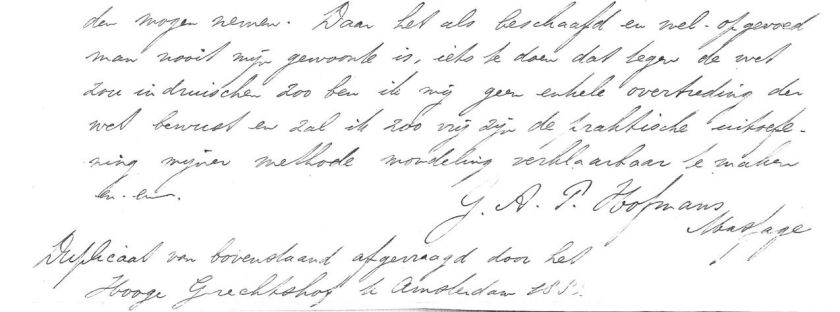 den mogen nemen. Daar het als beschaafd en wel-opgevoed
man nooit mijn gewoonte is, iets te doen dat tegen de wet
zou indruischen zoo ben ik mij geen enkele overtreding der
wet bewust en zal ik zoo vrij zijn de praktische uitoefe-
ning mijner methode mondeling verklaarbaar te maken
en. en.
G. A. P. Hofmans
Massage
Duplicaat van bovenstaand afgevraagd door het
Hooge Grechtshof te Amsterdam